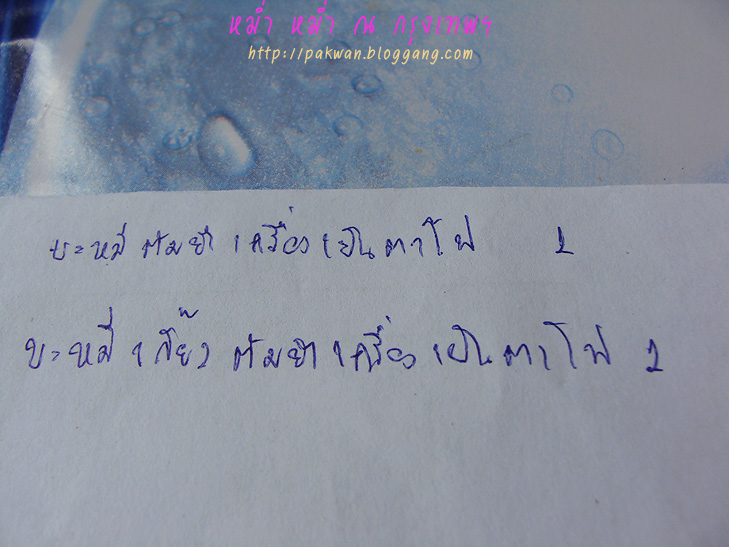 หม่ำ หม่ำ ณ กรุงเทพฯ
http://pakwan.bloggang.com
บะหมี่ ต้มยำ เครื่อง เย็นตาโฟ 1
บะหมี่ เกี๊ยว ต้มยำ เครื่อง เย็นตาโฟ 1